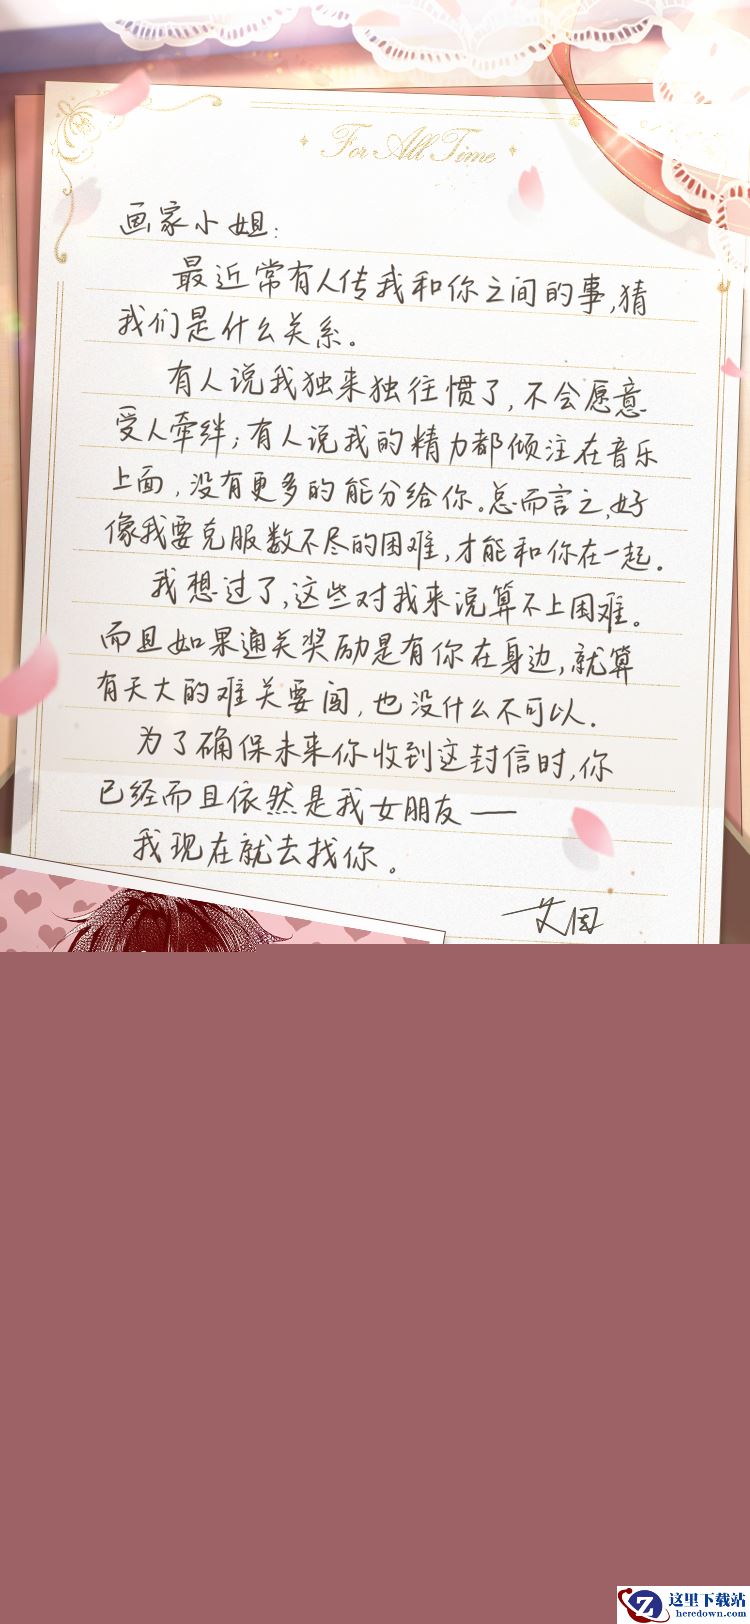 For All Time
画家小姐:
最近常有人传我和你之间的事,猜
我们是什么关系。
有人说我独来独往惯了,不会愿意
受人牵绊;有人说我的精力都倾注在音乐
上面,没有更多的能分给你。总而言之,好
像我要克服数不尽的困难,才能和你在一起.
我想过了,这些对我来说算不上困难。
而且如果通关奖励是有你在身边,就算
有天大的难关要闯,也没什么不可以.
为了确保未来你收到这封信时,你
已经而且依然是我女朋友——
我现在就去找你。
艾因
这里下载站
heredown.com